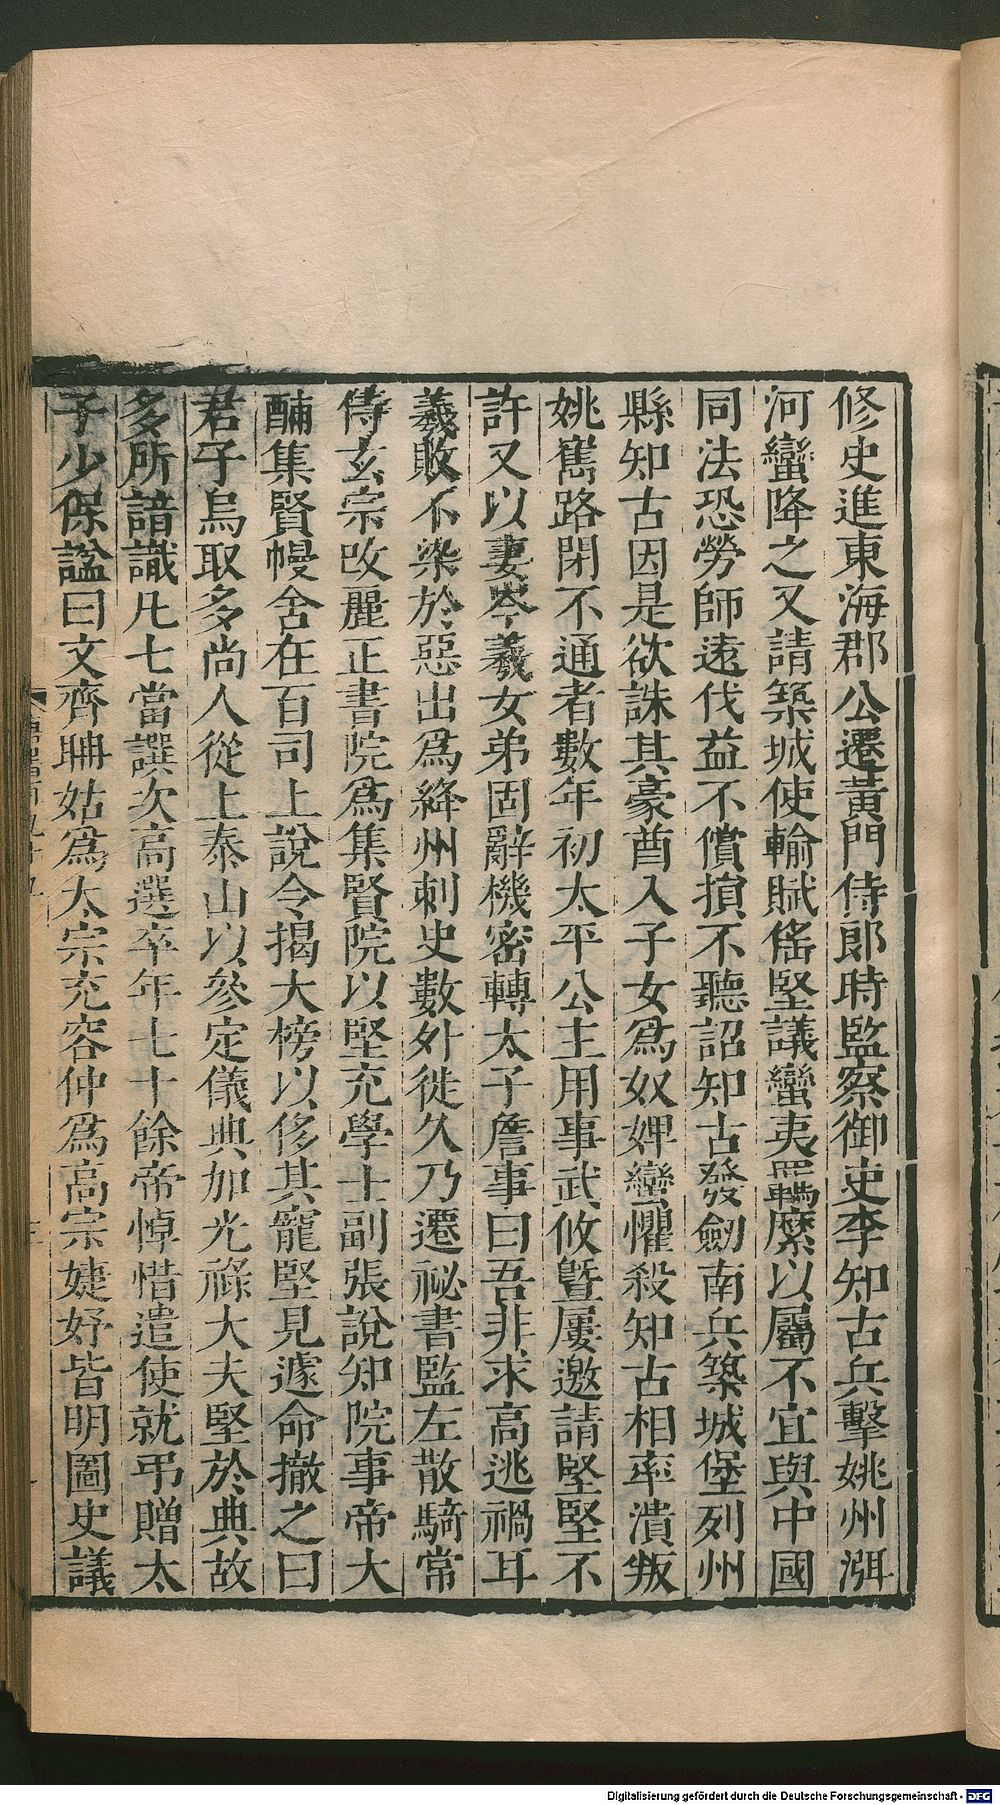 修史進東海郡公遷黃門侍郎時監察御史李知古兵擊姚州㳽
河蠻降之又請築城使輸賦徭堅議蠻夷羈縻以屬不宜與中國
同法恐勞師遠伐益不償損不聽詔知古發劒南兵築城堡列州
縣知古因是欲誅其豪酋入子女爲奴婢蠻懼殺知古相率潰叛
姚巂路閉不通者數年初太平公主用事武攸曁屢邀請堅堅不
許又以妻岑羲女弟固辭機密轉太子詹事曰吾非求高逃禍耳
羲敗不染於惡出爲絳州刺史數外徙久乃遷祕書監左散騎常
侍玄宗改麗正書院爲集賢院以堅充學士副張說知院事帝大
酺集賢幔舍在百司上說令揭大榜以侈其寵堅見遽命撤之曰
君子烏取多尚人從上泰山以參定儀典加光祿大夫堅於典故
多所諳識凡七當譔次高選卒年七十餘帝悼惜遣使就弔贈太
子少保謚曰文齊聃姑爲太宗充容仲爲高宗婕妤皆明圖史議